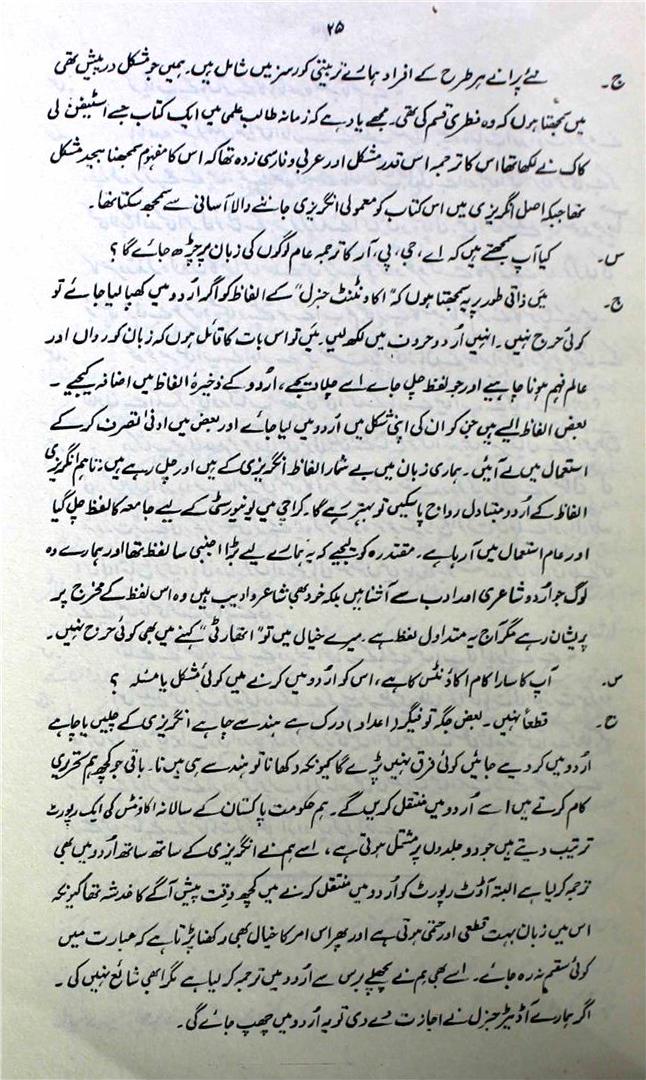 ۲۵
ج۔ نئے پرانے ہر طرح کے افراد ہمارے تربیتی کورسز میں شامل ہیں۔ ہمیں جو مشکل درپیش تھی
میں سمجھتا ہوں کہ وہ فطری قسم کی تھی۔ مجھے یاد ہے کہ زمانہ طالب علمی میں ایک کتاب جسے اسٹیفن لی
کاک نے لکھا تھا اس کا ترجمہ اس قدر مشکل اور عربی و فارسی زدہ تھا کہ اس کا مفہوم سمجھنا بیحد مشکل
تھا جبکہ اصل انگریزی میں اس کتاب کو معمولی انگریزی جاننے والا آسانی سے سمجھ سکتا تھا۔
س۔ کیا آپ سمجھتے ہیں کہ اے، جی، پی، آر کا ترجمہ عام لوگوں کی زبان پر چڑھ جائے گا؟
ج۔ میں ذاتی طور پر یہ سمجھتا ہوں کہ "اکاؤنٹنٹ جنرل" کے الفاظ کو اگر اُردو میں کھپا لیا جائے تو
کوئی حرج نہیں۔ انہیں اُردو حروف میں لکھ لیں۔ میں تو اس بات کا قائل ہوں کہ زبان کو رواں اور
عالم فہم ہونا چاہیے اور جو لفظ چل جائے اسے چلا دیجے، اُردو کے ذخیرۂ الفاظ میں اضافہ کیجیے۔
بعض الفاظ ایسے ہیں جن کو ان کی اپنی شکل میں اُردو میں لیا جائے اور بعض میں ادنیٰ تصرف کر کے
استعمال میں لے آئیں۔ ہماری زبان میں بے شمار الفاظ انگریزی کے ہیں اور چل رہے ہیں: تاہم انگریزی
الفاظ کے اُردو متبادل رواج پا سکیں تو بہتر رہے گا۔ کراچی میں یونیورسٹی کے لیے جامعہ کا لفظ چل گیا
اور عام استعمال میں آ رہا ہے۔ مقتدرہ کو لیجیے کہ یہ ہمارے لیے بڑا اجنبی سا لفظ تھا اور ہمارے وہ
لوگ جو اُردو شاعری اور ادب سے آشنا ہیں بلکہ خود بھی شاعر و ادیب ہیں وہ اس لفظ کے مخرج پر
پریشان رہے مگر آج یہ متداول لفظ ہے۔ میرے خیال میں تو "اتھارٹی" کہنے میں بھی کوئی حرج نہیں۔
س۔ آپ کا سارا کام اکاؤنٹس کا ہے، اس کو اُردو میں کرنے میں کوئی مشکل یا مسئلہ؟
ج۔ قطعاً نہیں۔ بعض جگہ تو فیگر (اعداد) ورک ہے ہندسے چاہے انگریزی کے چلیں یا چاہے
اُردو میں کر دیے جائیں کوئی فرق نہیں پڑے گا کیونکہ دکھانا تو ہندسے ہی ہیں نا۔ باقی جو کچھ ہم تحریری
کام کرتے ہیں اسے اُردو میں منتقل کریں گے۔ ہم حکومت پاکستان کے سالانہ اکاؤنٹس کی ایک رپورٹ
ترتیب دیتے ہیں جو دو جلدوں پر مشتمل ہوتی ہے، اسے ہم نے انگریزی کے ساتھ ساتھ اُردو میں بھی
ترجمہ کر لیا ہے البتہ آڈٹ رپورٹ کو اُردو میں منتقل کرنے میں کچھ دقت پیش آنے کا خدشہ تھا کیونکہ
اس میں زبان بہت قطعی اور حتمی ہوتی ہے اور پھر اس امر کا خیال بھی رکھنا پڑتا ہے کہ عبارت میں
کوئی سقم نہ رہ جائے۔ اسے بھی ہم نے پچھلے برس سے اُردو میں ترجمہ کر لیا ہے مگر ابھی شائع نہیں کی۔
اگر ہمارے آڈیٹر جنرل نے اجازت دے دی تو یہ اُردو میں چھپ جائے گی۔